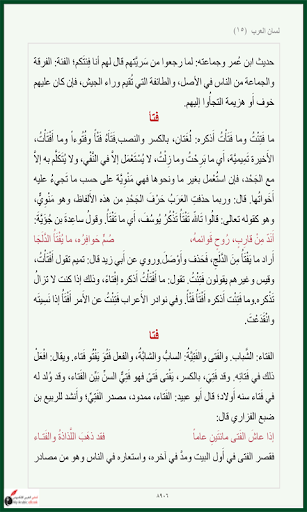 لسان العرب (١٥)
حديث ابن عُمر وجماعته: لما رجعوا من سَرِيَّتهم قال لهم أَنا فِئَتكم؛ الفئة: الفرقة
والجماعة من الناس في الأَصل، والطائفة التي تُقيم وراء الجيش، فإن كان عليهم
خوف أَو هزيمة التجأُوا إليهم.
فَتأ
ما فَتِئْتُ وما فَتَأْتُ أَذكره: لُغتان، بالكسر والنصب. فَتَأَهُ فَتْأً وفُتُوءاً وما أَفْتَأْتُ،
الأَخيرة تَمِيميَّة، أَي ما بَرِحْتُ وما زِلْتُ، لا يُسْتَعْمَل إلاَّ في النَّفْي، ولا يُتَكَلَّم به إلاَّ
مع الجَحْد، فإن استُعْمل بغير ما ونحوها فهي مَنْوِيّة على حسب ما تَجيءُ عليه
أَخواتُها. قال: وربما حذفتِ العَرَبُ حَرْفَ الجَحْدِ من هذه الأَلفاظ، وهو مَنْوِيٌّ،
وهو كقوله تعالى: قالُوا تاللّهِ تَفْتَأُ تَذْكُرُ يُوسُفَ، أَي ما تَفْتَأُ. وقولُ ساعِدةَ بن جُؤَيَّةَ:
أَنَدَّ مِنْ قارِبٍ، رَوحٍ قَوائمهُ، صُمٌّ حَوافِرُه، ما يَفْتَأُ الدَّلَجا
أَراد ما يَفْتَأُ مِنَ الدَّلَجِ، فحَذف وأَوْصَلَ. وروي عن أَبي زيد قال: تميم تقول أَفْتَأْتُ،
وقيس وغيرهم يقولون فَتِئْتُ. تقول: ما أَفْتَأْتُ أَذكره إِفْتاءً، وذلك إذا كنت لا تزالُ
تَذْكُره. وما فَتِئت أَذكره أَفْتَأُ فَتْأً. وفي نوادر الأَعراب فَتِئْتُ عن الأَمر أَفْتَأُ إذا نَسِيتَه
وانْقَدَعْتَ.
فَتا
الفَتاء: الشَّباب. والفَتى والفَتِيَّةُ: السابُّ والشابَّةُ، والفعل فَتُوَ يَفْتُو فَتاء. ويقال: افْعَلْ
ذلك في فَتائِه. وقد فَتِيَ، بالكسر، يَفْتى فَتىً فهو فَتِيُّ السنِّ بَيِّن الفَتاء، وقد وُلد له
في فَتاء سنه أَولاد؛ قال أَبو عبيد: الفَتاء، ممدود، مصدر الفَتِيِّ؛ وأَنشد للربيع بن
ضبع الفزاري قال:
إذا عاشَ الفَتى مائتَينِ عاماً فقد ذهَبَ اللَّذاذةُ والفَتاء
فقصر الفتى في أَول البيت ومدَّ في آخره، واستعاره في الناس وهو من مصادر
٨٩٠٦